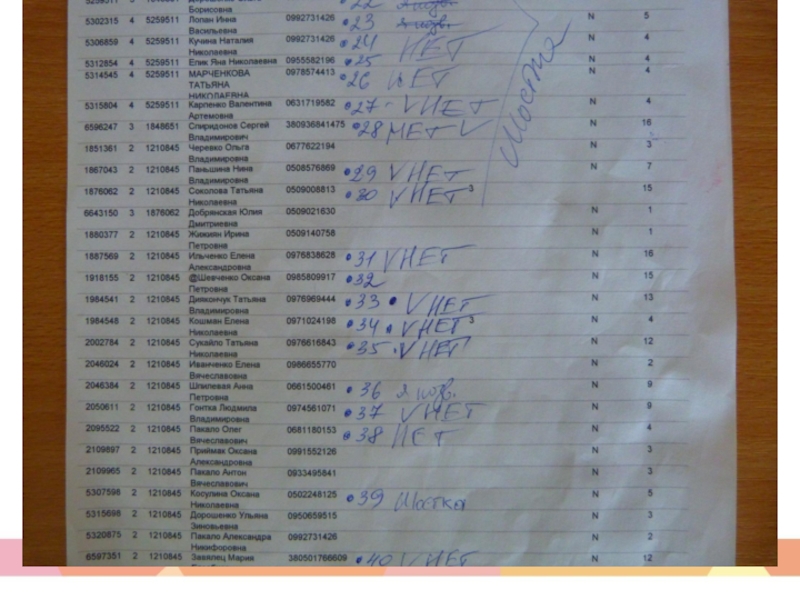 Борисовна
5302315 4 5259511 Лопан Инна 0992731426 •23 N 5
Васильевна
5306859 4 5259511 Кучина Наталия 0992731426 •24 НЕТ N 4
Николаевна
5312854 4 5259511 Елик Яна Николаевна 0955582196 •25 N 4
5314545 4 5259511 МАРЧЕНКОВА 0978574413 •26 НЕТ N 4
ТАТЬЯНА
НИКОЛАЕВНА
5315804 4 5259511 Карпенко Валентина 0631719582 •27 - V НЕТ N 4
Артемовна
6596247 3 1848651 Спиридонов Сергей 380936841475 •28 НЕТ V N 16
Владимирович
1851361 2 1210845 Черевко Ольга 0677622194 N 3
Владимировна
1867043 2 1210845 Паньшина Нина 0508576869 •29 V НЕТ N 7
Владимировна
1876062 2 1210845 Соколова Татьяна 0509008813 •30 V НЕТ 3 15
Николаевна
6643150 3 1876062 Добрянская Юлия 0509021630 N 1
Дмитриевна
1880377 2 1210845 Жижиян Ирина 0509140758 N 1
Петровна
1887569 2 1210845 Ильченко Елена 0976838628 •31 V НЕТ N 16
Александровна
1916155 2 1210845 @Шевченко Оксана 0985809917 •32 N 15
Петровна
1984541 2 1210845 Дияkончук Татьяна 0976969444 •33 • V НЕТ N 13
Владимировна
1984548 2 1210845 Кошман Елена 0971024198 •34 • V НЕТ 3 N 4
Николаевна
2002784 2 1210845 Сукайло Татьяна 0976616843 •35 . V НЕТ N 12
Николаевна
2046024 2 1210845 Иванченко Елена 0986655770 N 2
Вячеславовна
2046384 2 1210845 Шпилевая Анна 0661500461 •36 N 9
Петровна
2050611 2 1210845 Гонтка Людмила 0974561071 •37 V НЕТ N 9
Владимировна
2095522 2 1210845 Пакало Олег 0681180153 •38 НЕТ N 4
Вячеславович
2109897 2 1210845 Приймак Оксана 0991552126 N 3
Александровна
2109965 2 1210845 Пакало Антон 0933495841 N 3
Вячеславович
5307598 2 1210845 Косулина Оксана 0502248125 •39 Шостка N 5
Николаевна
5315698 2 1210845 Дорошенко Ульяна 0950659515 N 3
Зиновьевна
5320875 2 1210845 Пакало Александра 0992731426 N 2
Никифоровна
6597351 2 1210845 Завялец Мария 380501766609 •40 V НЕТ N 12
Шостка